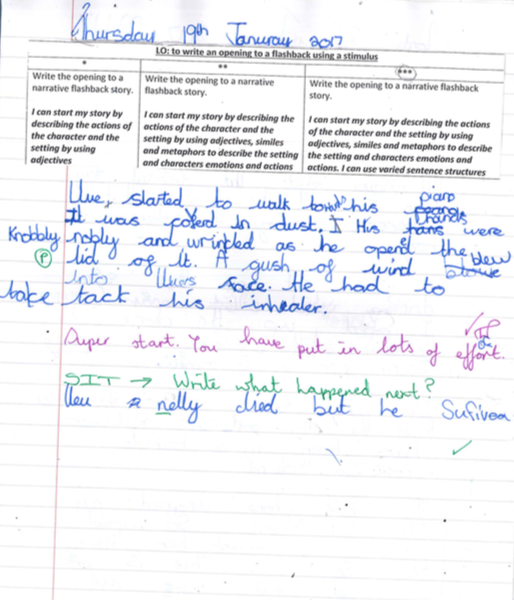 Thursday 19th Januray 2017
LO: to write an opening to a flashback using a stimulus
*
Write the opening to a
narrative flashback story.
I can start my story by
describing the actions of
the character and the
setting by using
adjectives
**
Write the opening to a narrative
flashback story.
I can start my story by describing the
actions of the character and the
setting by using adjectives, similes
and metaphors to describe the setting
and characters emotions and actions
***
Write the opening to a narrative flashback
story.
I can start my story by describing the actions
of the character and the setting by using
adjectives, similes and metaphors to describe
the setting and characters emotions and
actions. I can use varied sentence structures
started to walk his piano
It was in dust. His hands were
Knobbly nobly and wrinkled as he opend the
lid of it. A gush of wind blew
into face. He had to
take tack his inhealer.
Super start. You have put in lots of effort.
P
SIT → Write what happened next?
nelly died but he